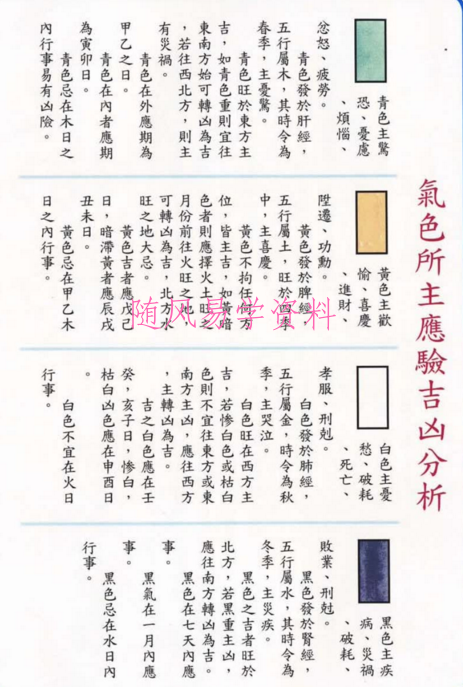 氣色所主應驗吉凶分析
青色主驚
恐、憂慮
、煩惱、
忿怒、疲勞。
青色發於肝經，
五行屬木，其時令為
春季，主憂驚。
青色旺於東方主
吉，如青色重則宜往
東南方始可轉凶為吉
，若往西北方，則主
有災禍。
青色在外應期為
甲乙之日。
青色在內者應期
為寅卯日。
青色忌在木日之
內行事易有凶險。
黃色主歡
愉、喜慶
、進財、
陞遷、功勳。
黃色發於脾經，
五行屬土，旺於四季
中，主喜慶。
黃色不拘任何方
位，皆主吉，如黃暗
色者則應擇火土旺之
月份前往火旺之地，
可轉凶為吉，北方水
旺之地大忌。
黃色吉者應戊己
日，暗滯黃者應辰戌
丑未日。
黃色忌在甲乙木
日之內行事。
随风易学资料
白色主憂
愁、破耗
、死亡、
孝服、刑剋。
白色發於肺經，
五行屬金，時令為秋
季，主哭泣。
白色旺在西方主
吉，若慘白色或枯白
色則不宜往東方或東
南方主凶，應往西方
，主轉凶為吉。
吉之白色應在壬
癸，亥子日，慘白，
枯白凶色應在申酉日
。
白色不宜在火日
行事。
黑色主疾
病、災禍
、破耗、
敗業、刑剋。
黑色發於腎經，
五行屬水，其時令為
冬季，主災疾。
黑色之吉者旺於
北方，若黑重主凶，
應往南方轉凶為吉。
黑色在七天內應
事。
黑氣在一月內應
事。
黑色忌在水日內
行事。